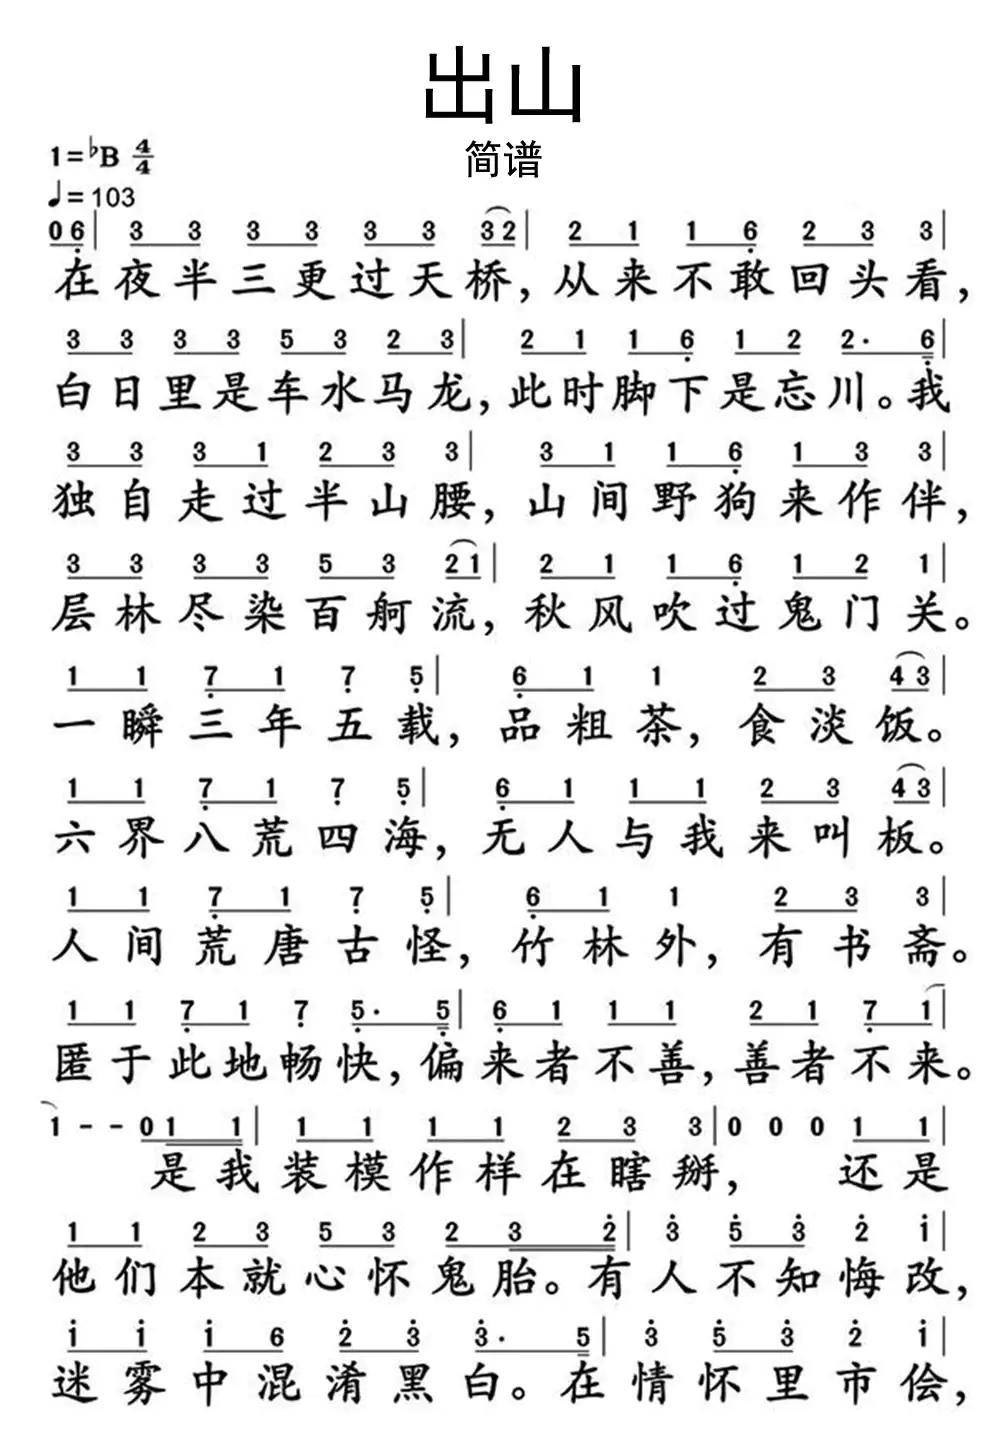 出山
简谱
1=♭B 4/4
♩=103
0 6 | 3 3 3 3 3 3 3 2 | 2 1 1 6 2 3 3 |
在夜半三更过天桥，从来不敢回头看，
3 3 3 3 5 3 2 3 | 2 1 1 6 1 2 2· 6 |
白日里是车水马龙，此时脚下是忘川。我
3 3 3 1 2 3 3 | 3 1 1 6 1 3 3 |
独自走过半山腰，山间野狗来作伴，
3 3 3 3 5 3 2 1 | 2 1 1 6 1 2 1 |
层林尽染百舸流，秋风吹过鬼门关。
1 1 7 1 7 5 | 6 1 1 2 3 4 3 |
一瞬三年五载，品粗茶，食淡饭。
1 1 7 1 7 5 | 6 1 1 1 2 3 4 3 |
六界八荒四海，无人与我来叫板。
1 1 7 1 7 5 | 6 1 1 2 3 3 |
人间荒唐古怪，竹林外，有书斋。
1 1 7 1 7 5· 5 | 6 1 1 1 2 1 7 1 |
匿于此地畅快，偏来者不善，善者不来。
1 - - 0 1 1 | 1 1 1 1 2 3 3 | 0 0 0 1 1 |
是我装模作样在瞎掰，还是
1 1 2 3 5 3 2 3 2 | 3 5 3 2 1 |
他们本就心怀鬼胎。有人不知悔改，
1 1 1 6 2 3 3· 5 | 3 5 3 2 1 |
迷雾中混淆黑白。在情怀里市侩，